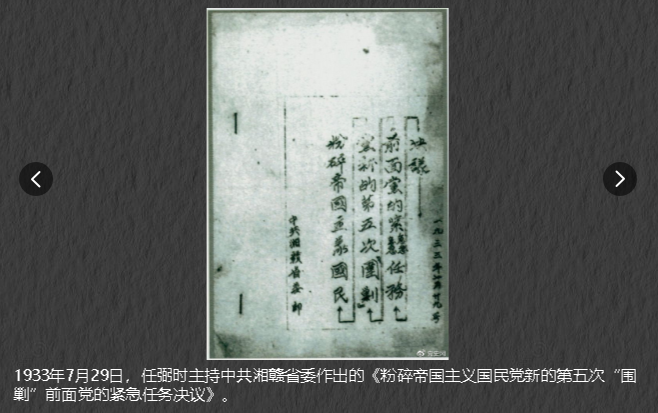 中共湘贛省委印
粉碎帝國主義國民
黨新的第五次「圍剿」
前面黨的緊急任務
決議
一九三三年七月廿九号
1933年7月29日，任弼时主持中共湘赣省委作出的《粉碎帝国主义国民党新的第五次“围
剿”前面党的紧急任务决议》。